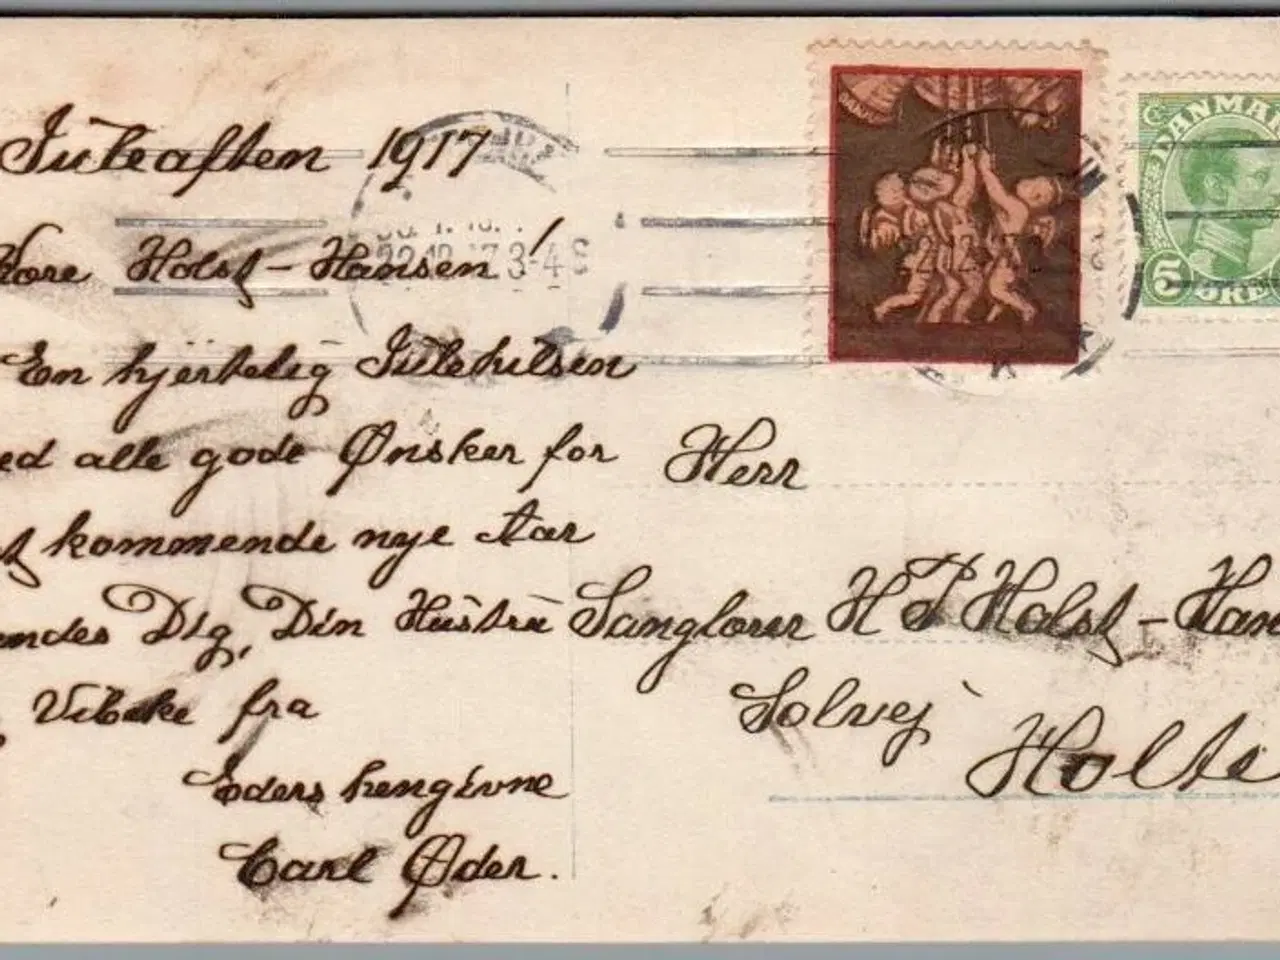 Juleaften 1917
Kære Holst-Hansen!
En hjertelig Julehilsen
ed alle gode Ønsker for
t kommende nye Aar
endes Dig, Din Hustru
Vibeke fra
Eders hengivne
Carl Øder.
22.12.17 3-4 S
DANMARK
DANMA
5 ØRE
Herr
Sanglærer H P Holst-Han
Solvej
Holte